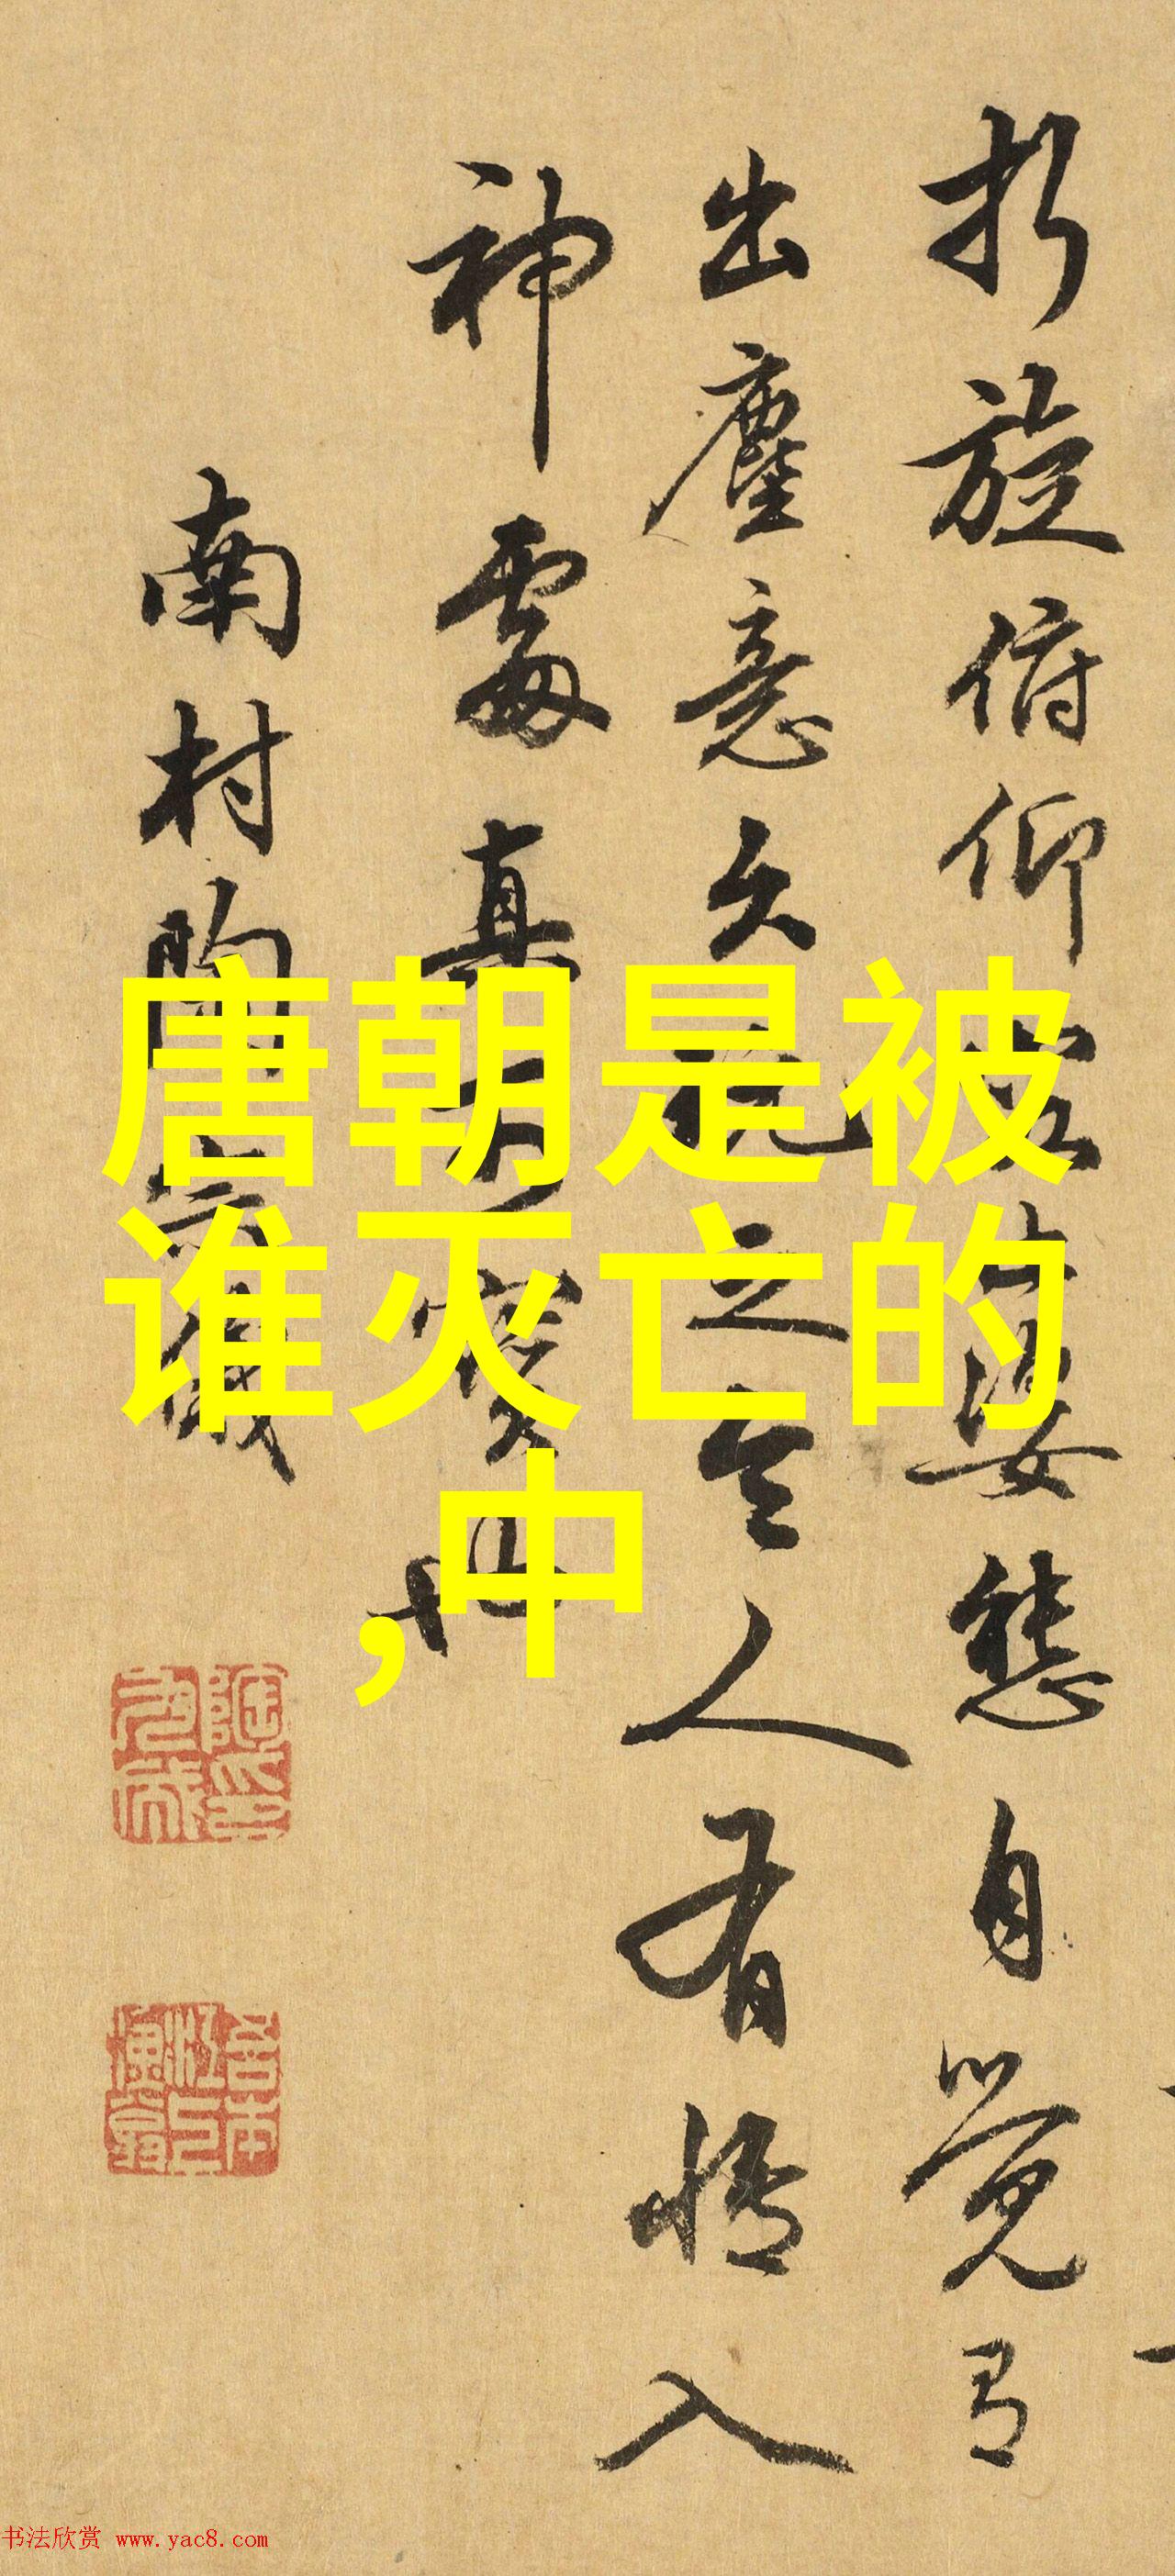 折旋俯仰
態自覺有
出塵意久
之令人有情入
神處真
南村陶
唐朝是被
谁灭亡的
,中
书法欣赏 www.yac8.com